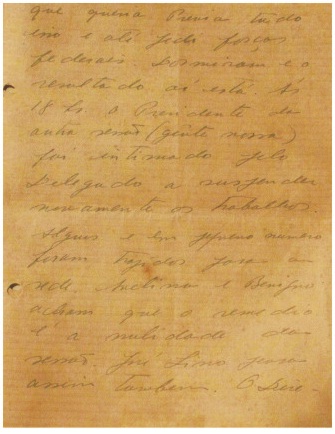 que queria Prensa tudo
isso e até pedir forças
federais. Dormiram e o
resultado aí está. Às
18 hs. o Presidente da
sessão (gente nossa)
foi intimado pelo
Delegado a suspender
novamente os trabalhos.
Alguns e em pequeno numero
foram trazidos para a
rede. e Benigno
acham que o remedio
é a nulidade da
sessão. José Lino pensa
assim tambem. O